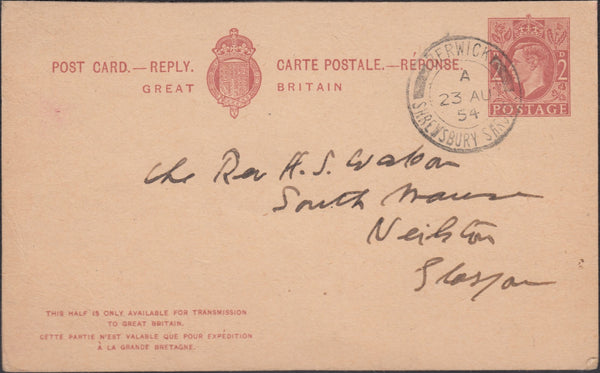 POST CARD.—REPLY. CARTE POSTALE.—RÉPONSE.
GREAT BRITAIN
2 D 2
POSTAGE
BERWICK
A
23 AU
54
SHREWSBURY SHROP
The Rev H. S. Watson
South Manse
Neilston
Glasgow
THIS HALF IS ONLY AVAILABLE FOR TRANSMISSION
TO GREAT BRITAIN.
CETTE PARTIE N'EST VALABLE QUE POUR EXPÉDITION
À LA GRANDE BRETAGNE.